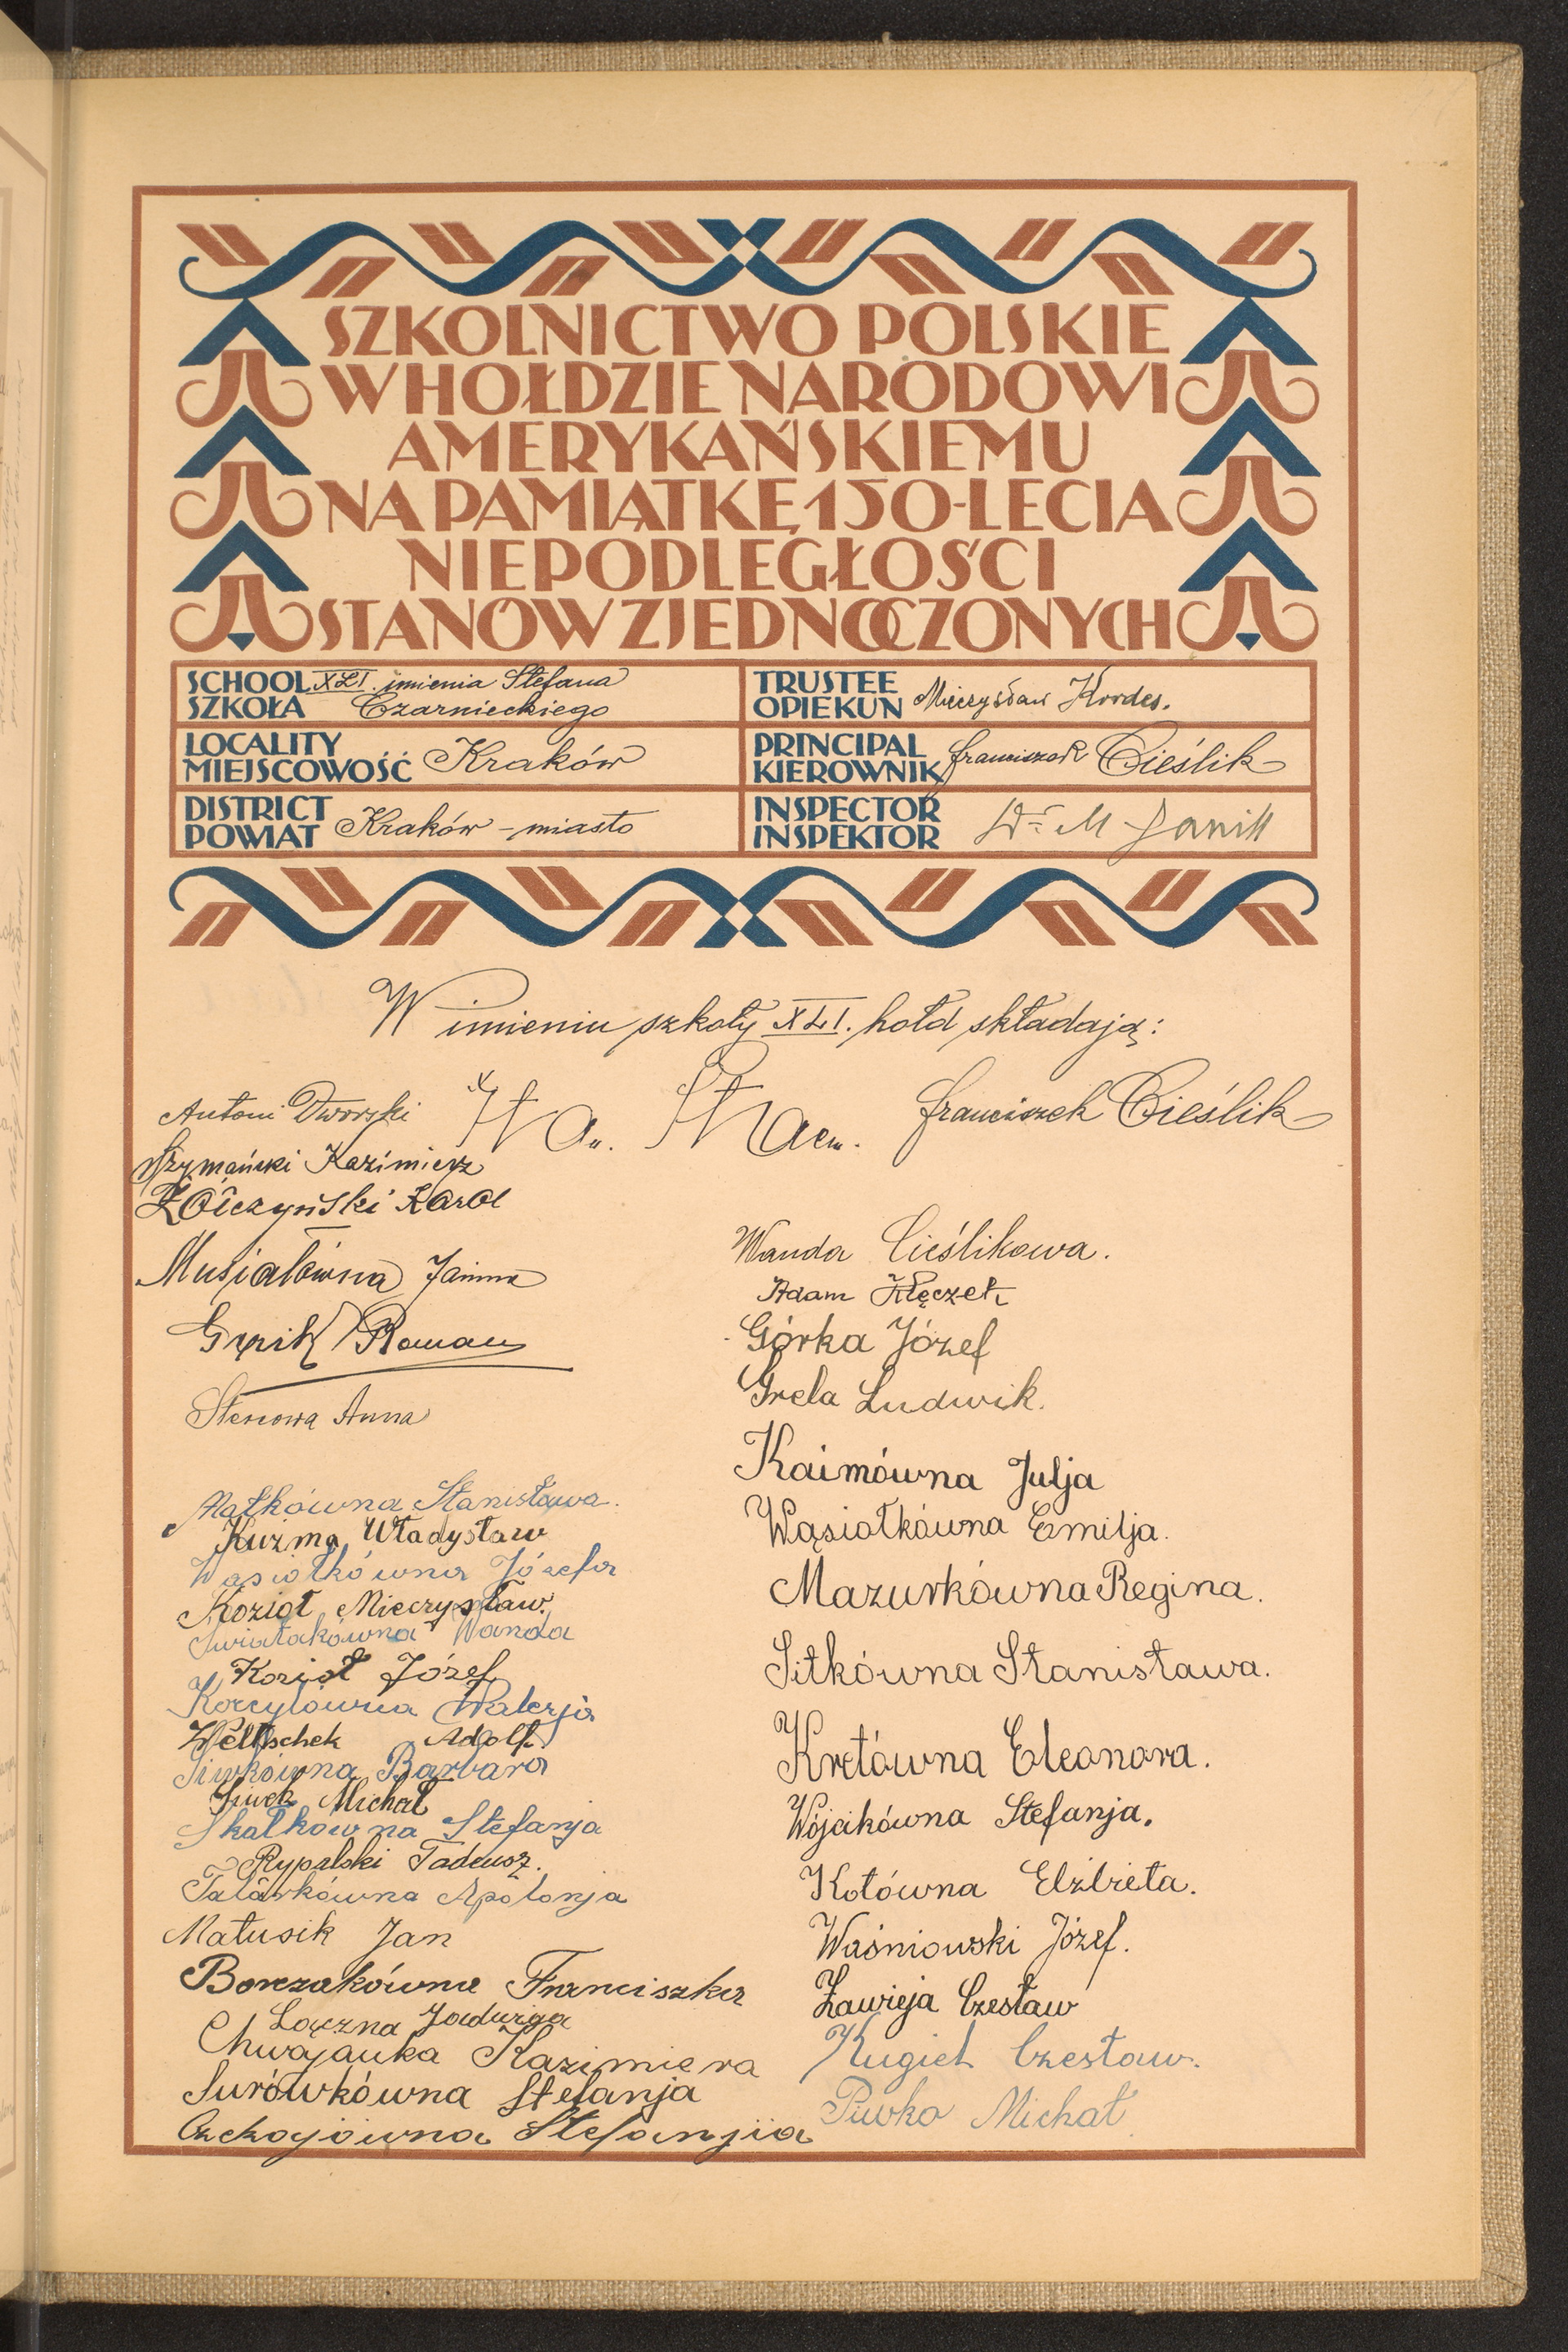 SZKOLNICTWO POLSKIE
W HOŁDZIE NARODOWI
AMERYKAŃSKIEMU
NA PAMIĄTKĘ 150-LECIA
NIEPODLEGŁOŚCI
STANÓW ZJEDNOCZONYCH
SCHOOL SZKOŁA XLI. imienia Stefana
Czarnieckiego
TRUSTEE OPIEKUN Mieczysław Kordes.
LOCALITY MIEJSCOWOŚĆ Kraków
PRINCIPAL KIEROWNIK Franciszek Cieślik
DISTRICT POWIAT Kraków - miasto
INSPECTOR INSPEKTOR Dr M Janik
W imieniu szkoły XLI. hołd składają:
Antoni Dworski
Franciszek Cieślik
Szymański Kazimierz
Żółczyński Karol
Musiałówna Janina
Roman
Anna
Wanda Cieślikowa.
Adam Kłęczek
Górka Józef
Grela Ludwik.
Kaimówna Julja
Wąsiołkówna Emilja.
Mazurkówna Regina.
Sitkówna Stanisława.
Kretówna Eleonora.
Wójcikówna Stefanja.
Kotówna Elżbieta.
Waśniowski Józef.
Zawieja Czesław
Kugiel Czesław.
Piwko Michał
Małkówna Stanisława.
Kuźma Władysław
Wąsiołkówna Józefa
Kozioł Mieczysław.
Światakówna Wanda
Kozioł Józef
Korcylówna Walerja
Weltschek Adolf.
Siwkówna Barbara
Siwek Michał
Skałkowna Stefanja
Rypalski Tadeusz.
Talarkówna Apolonja
Matusik Jan
Borczakówna Franciszka
Łączna Jadwiga
Chwajauka Kazimiera
Surówkówna Stefanja
Stefanjia